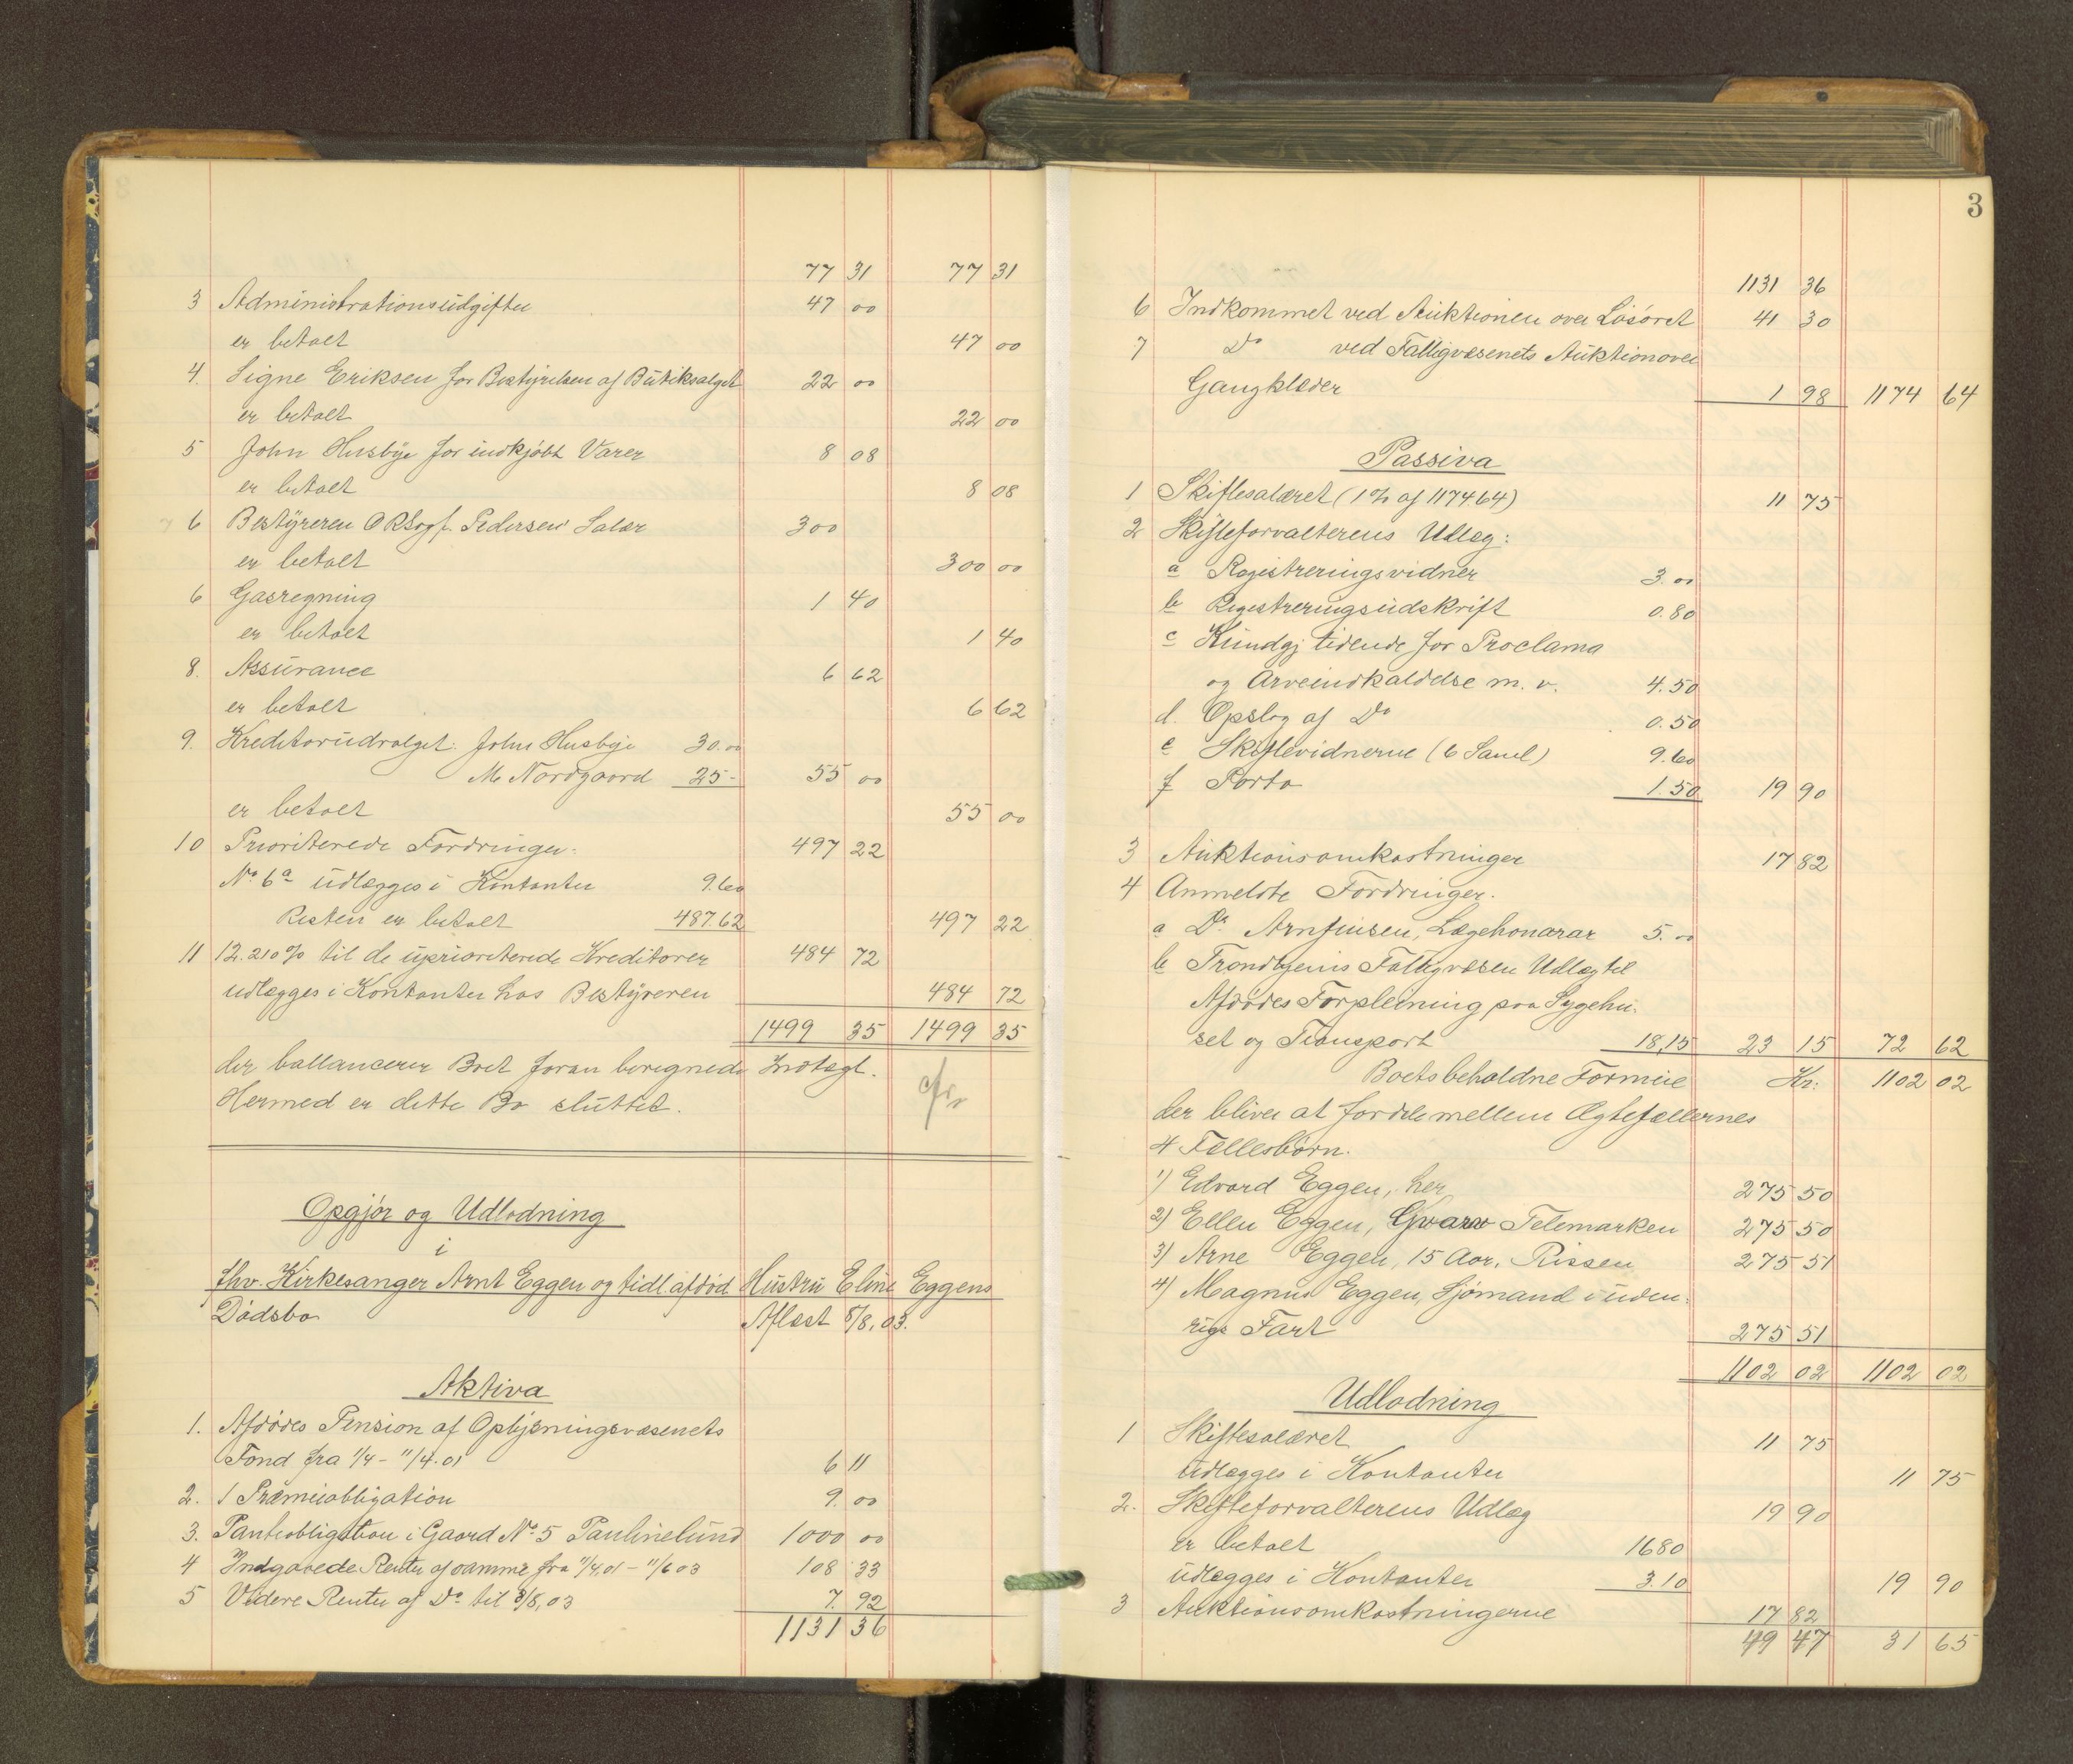 77 31 77 31
3 Administrationsudgifter 47 00
er betalt 47 00
4. Signe Eriksen for Bestyrelsen af Butiksalget 22 00
er betalt 22 00
5 John Husbye for indkjøbt Varer 8 08
er betalt 8 08
6 Bestyreren ORSagf. Pedersens Salær 300
er betalt 300 00
6 Gasregning 1 40
er betalt 1 40
8. Assurance 6 62
er betalt 6 62
9. Kreditorudvalget: John Husbye 30.00
M. Nordgaard 25- 55 00
er betalt 55 00
10 Prioriterede Fordringer: 497 22
No. 6a udlægges i Kontanter 9.60
Resten er betalt 487.62 497 22
11 12.210% til de uprioriterede Kreditorer 484 72
udlægges i Kontanter hos Bestyreren 484 72
1499 35 1499 35
der ballancerer Boet foran beregnede Indtægt.
Hermed er dette Bo sluttet.
Opgjør og Udlodning
i
fhv. Kirkesanger Arnt Eggen og tidl. afdød Hustru Eline Eggens
Dødsbo Aflæst 8/8,03.
Aktiva
1. Afdødes Pension af Oplysningsvæsenets
Fond fra 1/4 - 11/4.01 6 11
2. 1 Præmieobligation 9. 00
3. Panteobligation i Gaard No. 5 Paulinelund 1000 00
4 Indgaaede Renter af samme fra 11/4,01 - 11/6 03 108 33
5 Videre Renter af Do til 8/8,03 7. 92
1131 36
3
1131 36
6 Indkommet ved Auktionen over Løsøret 41 30
7 Do ved Fattigvæsenets Auktion over
Gangklæder 1 98 1174 64
Passiva
1 Skiftesalæret (1% af 1174 64) 11 75
2 Skifteforvalterens Udlæg:
a Registreringsvidner 3.00
b Registreringsudskrift 0.80
c Kundgj tidende for Proclama
og Arveindkaldelse m. v. 4.50
d. Opslag af Do 0.50
e Skiftevidnerne (6 Saml) 9.60
f Porto 1.50 19 90
3 Auktionsomkostninger 17 82
4 Anmeldte Fordringer.
a Dr. Arnfinsen, Lægehonorar 5.00
b Trondhjems Fattigvæsen Udlæg til
Afdødes Forpleining paa Sygehu-
set og Transport 18,15 23 15 72 62
Boets behaldne Formue Kr: 1102 02
der bliver at fordele mellem Ægtefællernes
4 Fællesbørn.
1) Edvard Eggen, her 275 50
2) Ellen Eggen, Gvarv Telemarken 275 50
3) Arne Eggen, 15 Aar, Rissen 275 51
4) Magnus Eggen, Sjømand i uden-
rigs Fart 275 51
1102 02 1102 02
Udlodning
1 Skiftesalæret 11 75
udlægges i Kontanter 11 75
2. Skifteforvalterens Udlæg 19 90
er betalt 16 80
udlægges i Kontanter 3.10 19 90
3 Auktionsomkostningerne 17 82
49 47 31 65